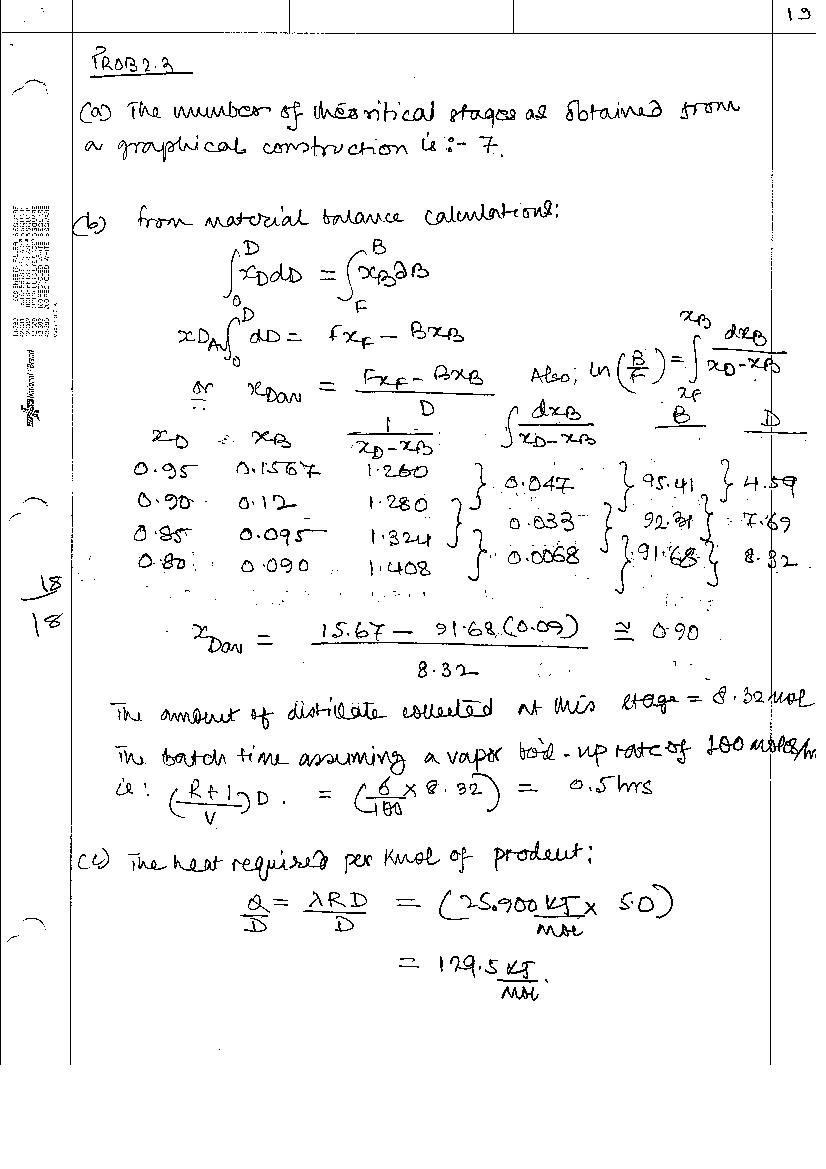 19
PROB 2.3
(a) The number of theoritical stages as obtained from
a graphical construction is :- 7.
(b) from material balance calculations:
∫₀ᴰ xD dD = ∫_F^B xB dB
xDAv ∫₀ᴰ dD = FxF - BxB
or xDav = (FxF - BxB) / D Also; ln(B/F) = ∫_xF^xB dxB / (xD-xB)
xD xB 1/(xD-xB) ∫ dxB/(xD-xB) B D
0.95 0.1567 1.260 } 0.047 } 95.41 } 4.59
0.90 0.12 1.280 } 0.033 } 92.31 } 7.69
0.85 0.095 1.324
0.80 0.090 1.408 } 0.0068 } 91.68 } 8.32
18/18
xDav = (15.67 - 91.68(0.09)) / 8.32 ≅ 0.90
The amount of distillate collected at this stage = 8.32 mol
The batch time assuming a vapor boil-up rate of 100 moles/hr
is: ((R+1)/V) D. = (6/100 × 8.32) = 0.5 hrs
(c) The heat required per Kmol of product:
Q/D = λRD/D = (25.900 KJ/mol × 5.0)
= 129.5 KJ/mol.